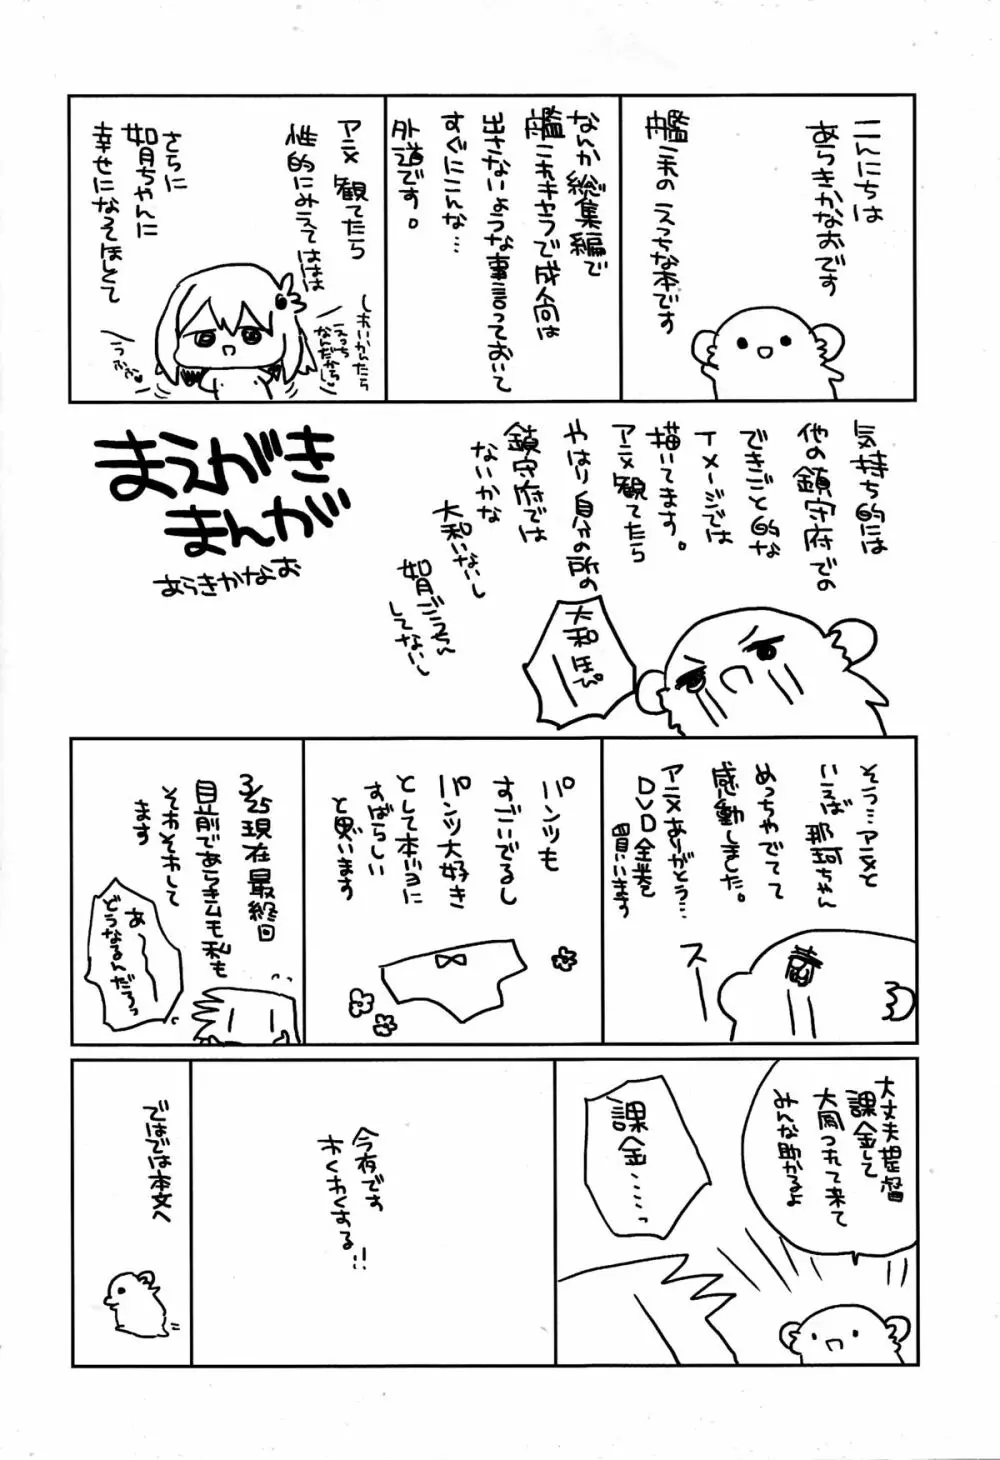 こんにちは
あらきかなおです
艦これの えっちな本です
なんか総集編で
艦これキャラで成人向は
出さないような事言っておいて
すぐにこんな…
外道です。
アニメ 観てたら
性的にみえてははは
さらに
如月ちゃんに
幸せになってほしくて
しれいかんたら
えっち
なんだから♥
うふふ♥
まえがき
まんが
あらきかなお
気持ち的には
他の鎮守府での
できごと的な
イメージでは
描いてます。
アニメ観てたら
やはり自分の所の
鎮守府では
ないかな
大和いないし
如月ごうちん
してないし
大和ほぴ
そう…アニメと
いえば 那珂ちゃん
めっちゃでてて
感動しました。
アニメありがとう…
DVD全巻
買います
スー
パンツも
すごいでるし
パンツ大好き
として本当に
すばらしい
と思います
3/25現在最終回
目前であらきムも私も
そわそわして
ます
あ〜
どうなるんだろっ
大丈夫提督
課金して
大鳳つれて来て
みんな助かるよ
課金……っ
今夜です
わくわくする!!
ではでは本文へ